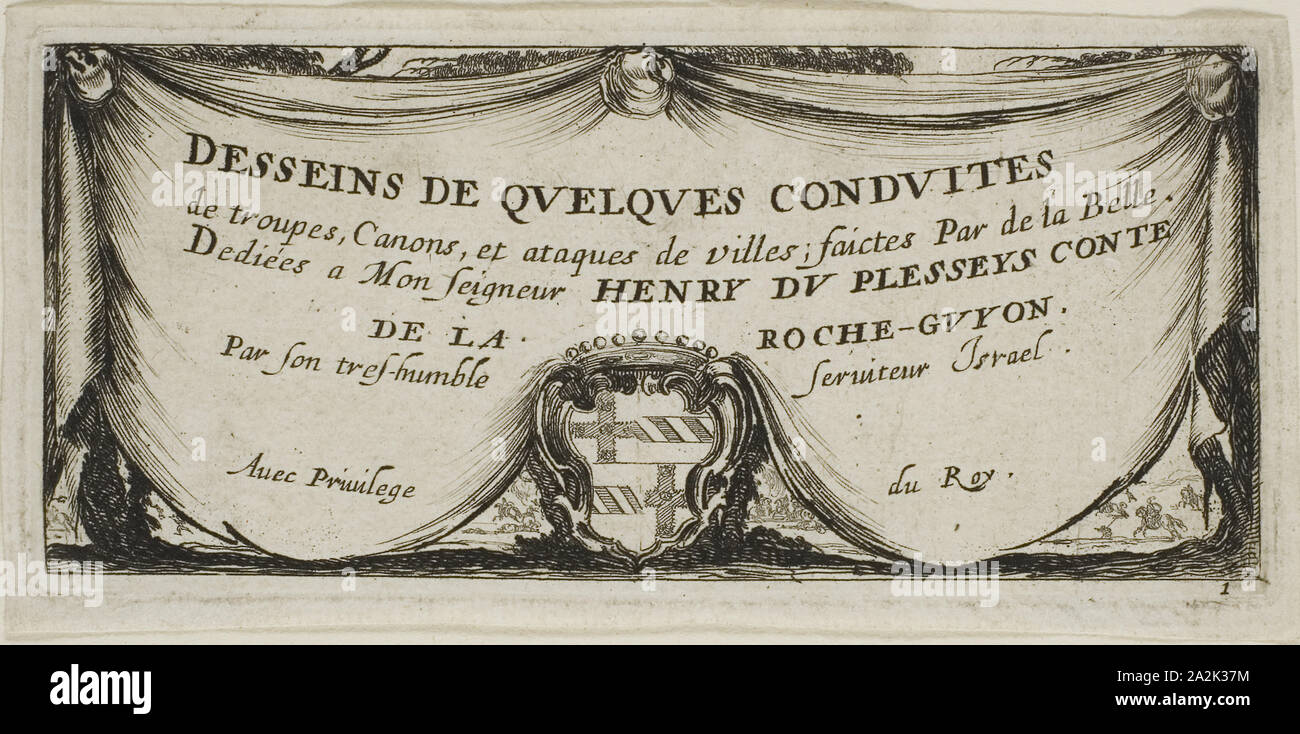 DESSEINS DE QVELQVES CONDVITES
de troupes, Canons, et ataques de villes; faictes Par de la Belle.
Dediées a Mon ſeigneur HENRY DV PLESSEYS CONTE
DE LA. ROCHE-GVYON.
Par ſon treſ-humble ſeruiteur Iſrael.
Auec Priuilege du Roy.
1
alamy
alamy
Image ID: 2A2K37M
www.alamy.com